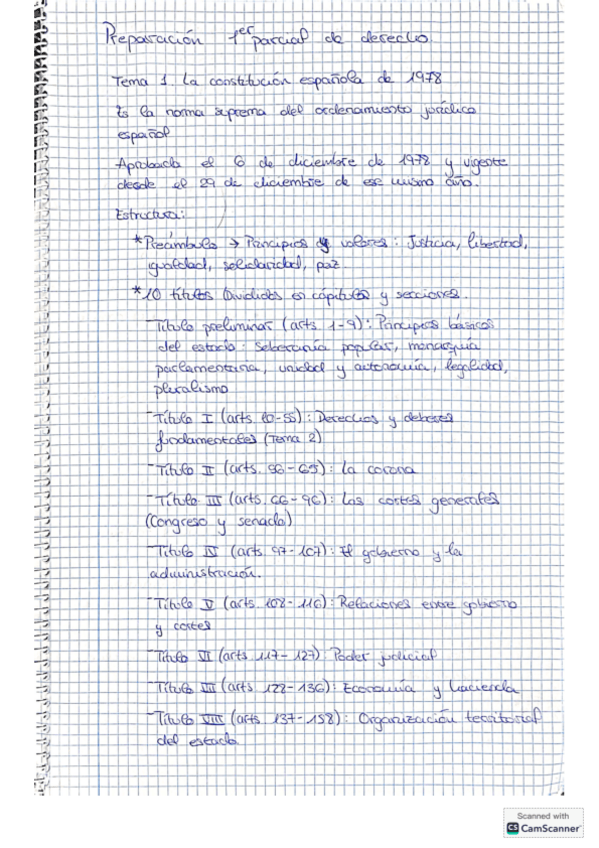 Preparación 1er parcial de derecho.
Tema 1. La constitución española de 1978
Es la norma suprema del ordenamiento jurídico
español
Aprobada el 6 de diciembre de 1978 y vigente
desde el 29 de diciembre de ese mismo año.
Estructura:
*Preámbulo → Principios y valores: Justicia, libertad,
igualdad, solidaridad, paz.
*10 títulos divididos en cápitulos y secciones.
-Título preliminar (arts 1-9): Principios básicos
del estado: Soberanía popular, monarquía
parlamentaria, unidad y autonomía, legalidad,
pluralismo
-Título I (arts. 10-55): Derechos y deberes
fundamentales (Tema 2)
-Título II (arts. 56-65): La corona
-Título III (arts. 66-96): Las cortes generales
(Congreso y senado)
-Título IV (arts 97-107): El gobierno y la
administración.
-Título V (arts. 108-116): Relaciones entre gobierno
y cortes
-Título VI (arts 117-127): Poder judicial
-Título VII (arts 128-136): Economía y hacienda
-Título VIII (arts 137-158): Organización territorial
del estado
Scanned with
CS CamScanner